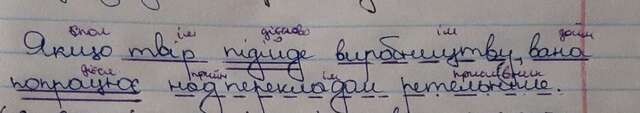 спол ім дієслово ім займ
Якщо твір підійде виробництву, вона
дієсл прийм ім прислівник
попрацює над перекладом ретельніше.